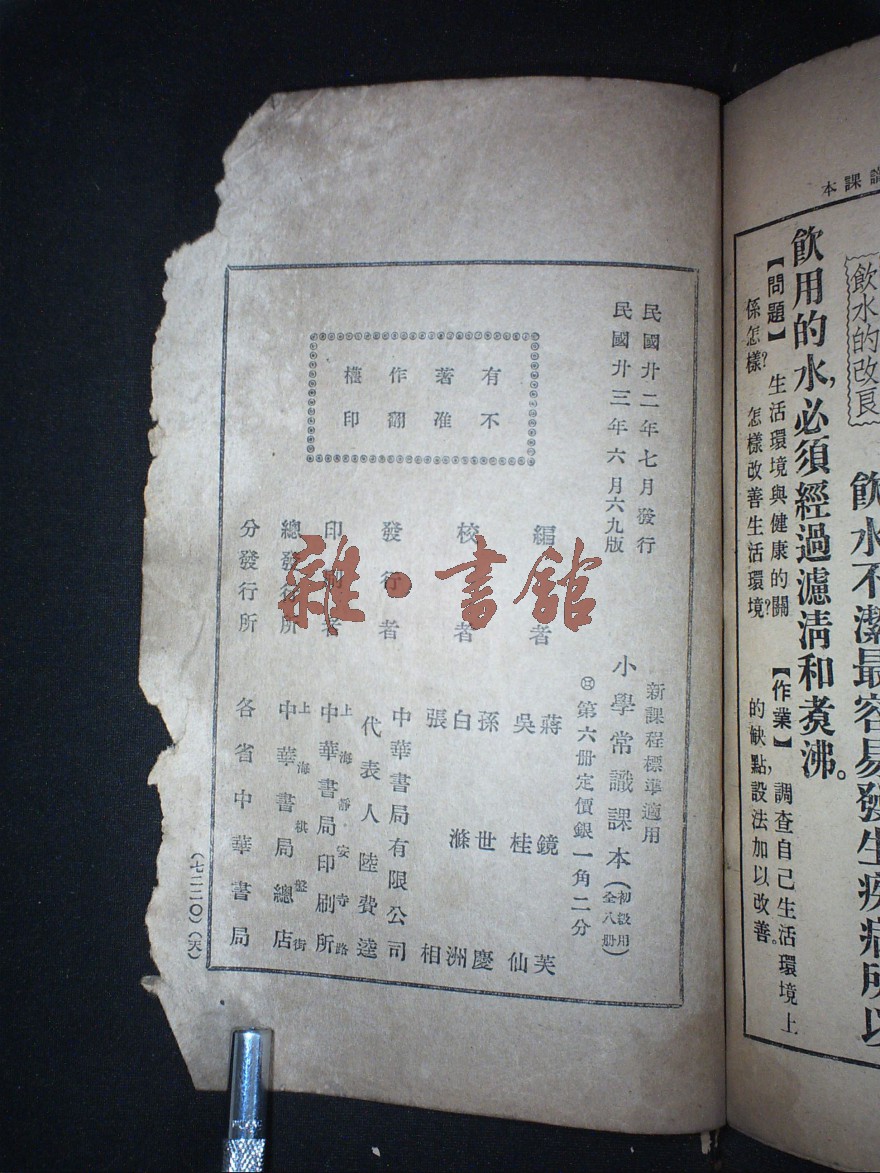 課本
飲水的改良
飲水不潔最容易發生疾病所以
飲用的水，必須經過濾清和煑沸。
【問題】 生活環境與健康的關
係怎樣？ 怎樣改善生活環境？
【作業】 調查自己生活環境上
的缺點，設法加以改善。
民國廿二年七月發行
民國廿三年六月六九版
有著作權
不准翻印
新課程標準適用
小學常識課本（初級用 全八冊）
第六冊定價銀一角二分
編者 蔣鏡芙
吳桂仙
校者 孫世慶
白滌洲
張相
發行者 中華書局有限公司
代表人 陸費逵
印刷者 上海靜安寺路
中華書局印刷所
總發行所 上海棋盤街
中華書局總店
分發行所 各省中華書局
（七二二〇）（天）
雜·書館